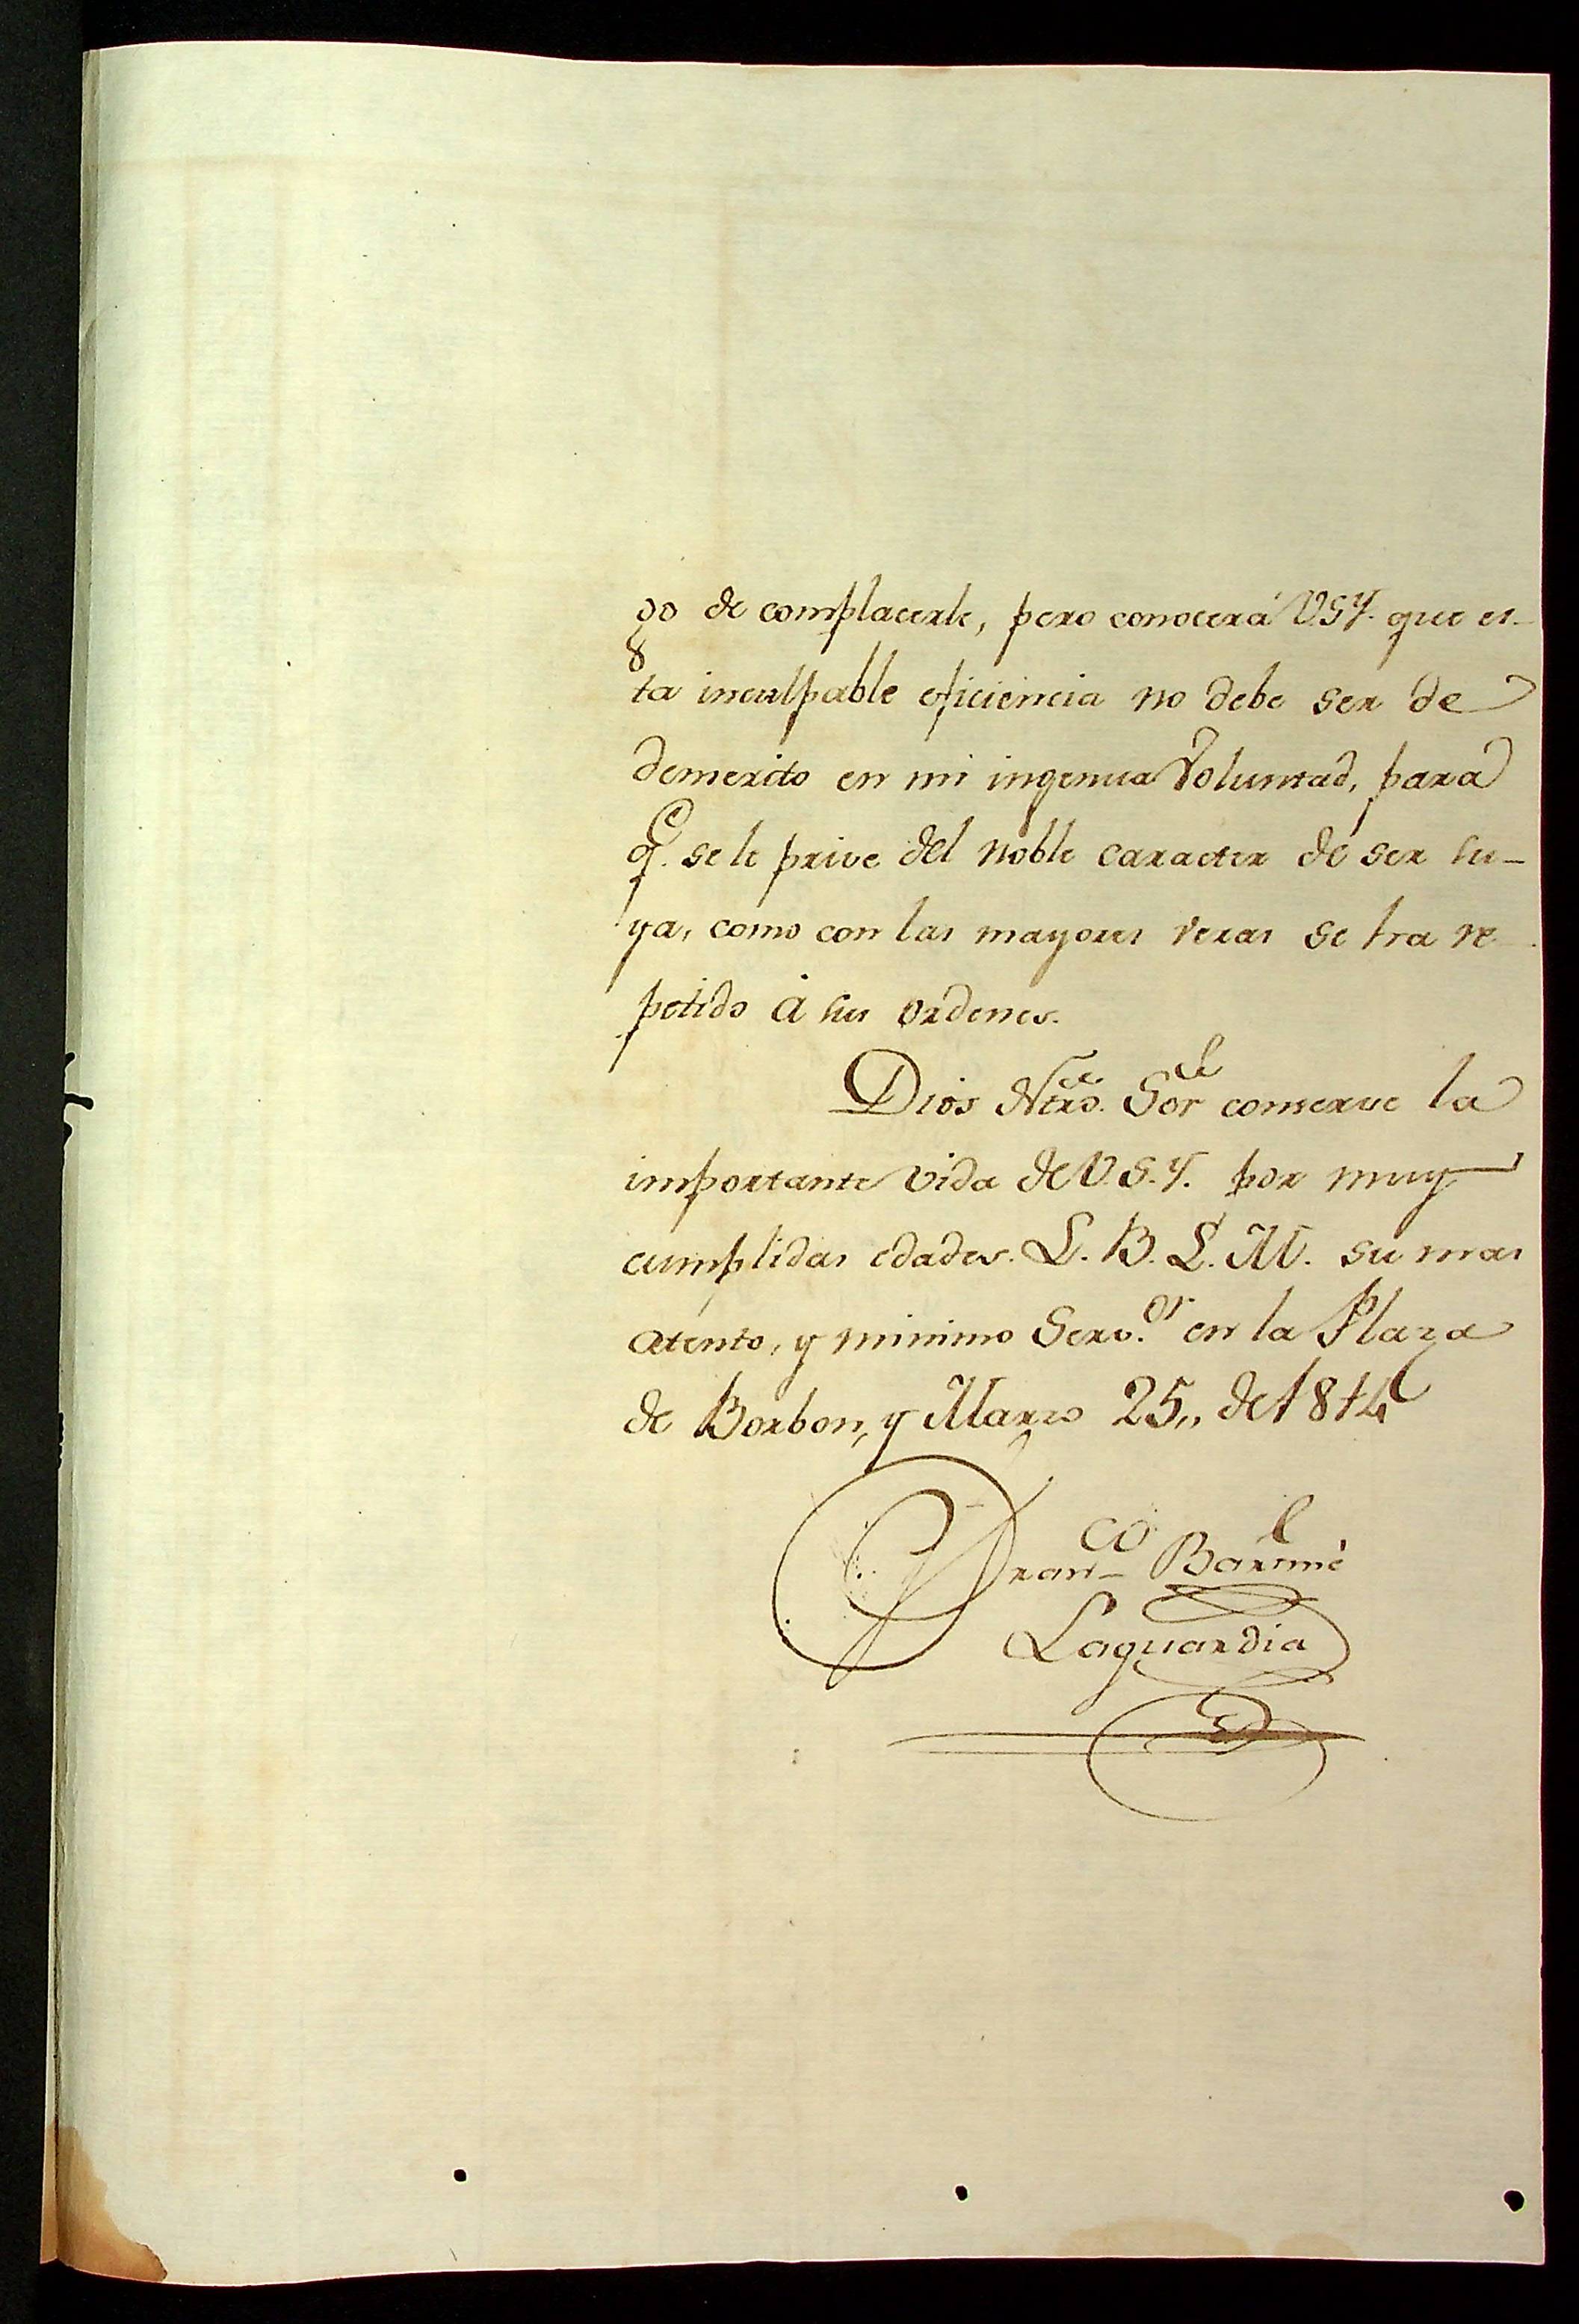 go de complacerle, pero conocerá V.S.Y. que es-
ta inculpable eficiencia no debe ser de
demerito en mi ingenua Voluntad, para
q. se le prive del noble caracter de ser su-
ya, como con las mayores veras se há re-
petido á sus ordenes.
Dios Ntro. Sor conserve la
importante vida de V.S.Y. por muy
cumplidas edades. L. B. L. M. su mas
atento, y minimo Serv.or en la Plaza
de Borbon, y Marzo 25,, de 1814
Fran.co Barl.mé
Laguardia